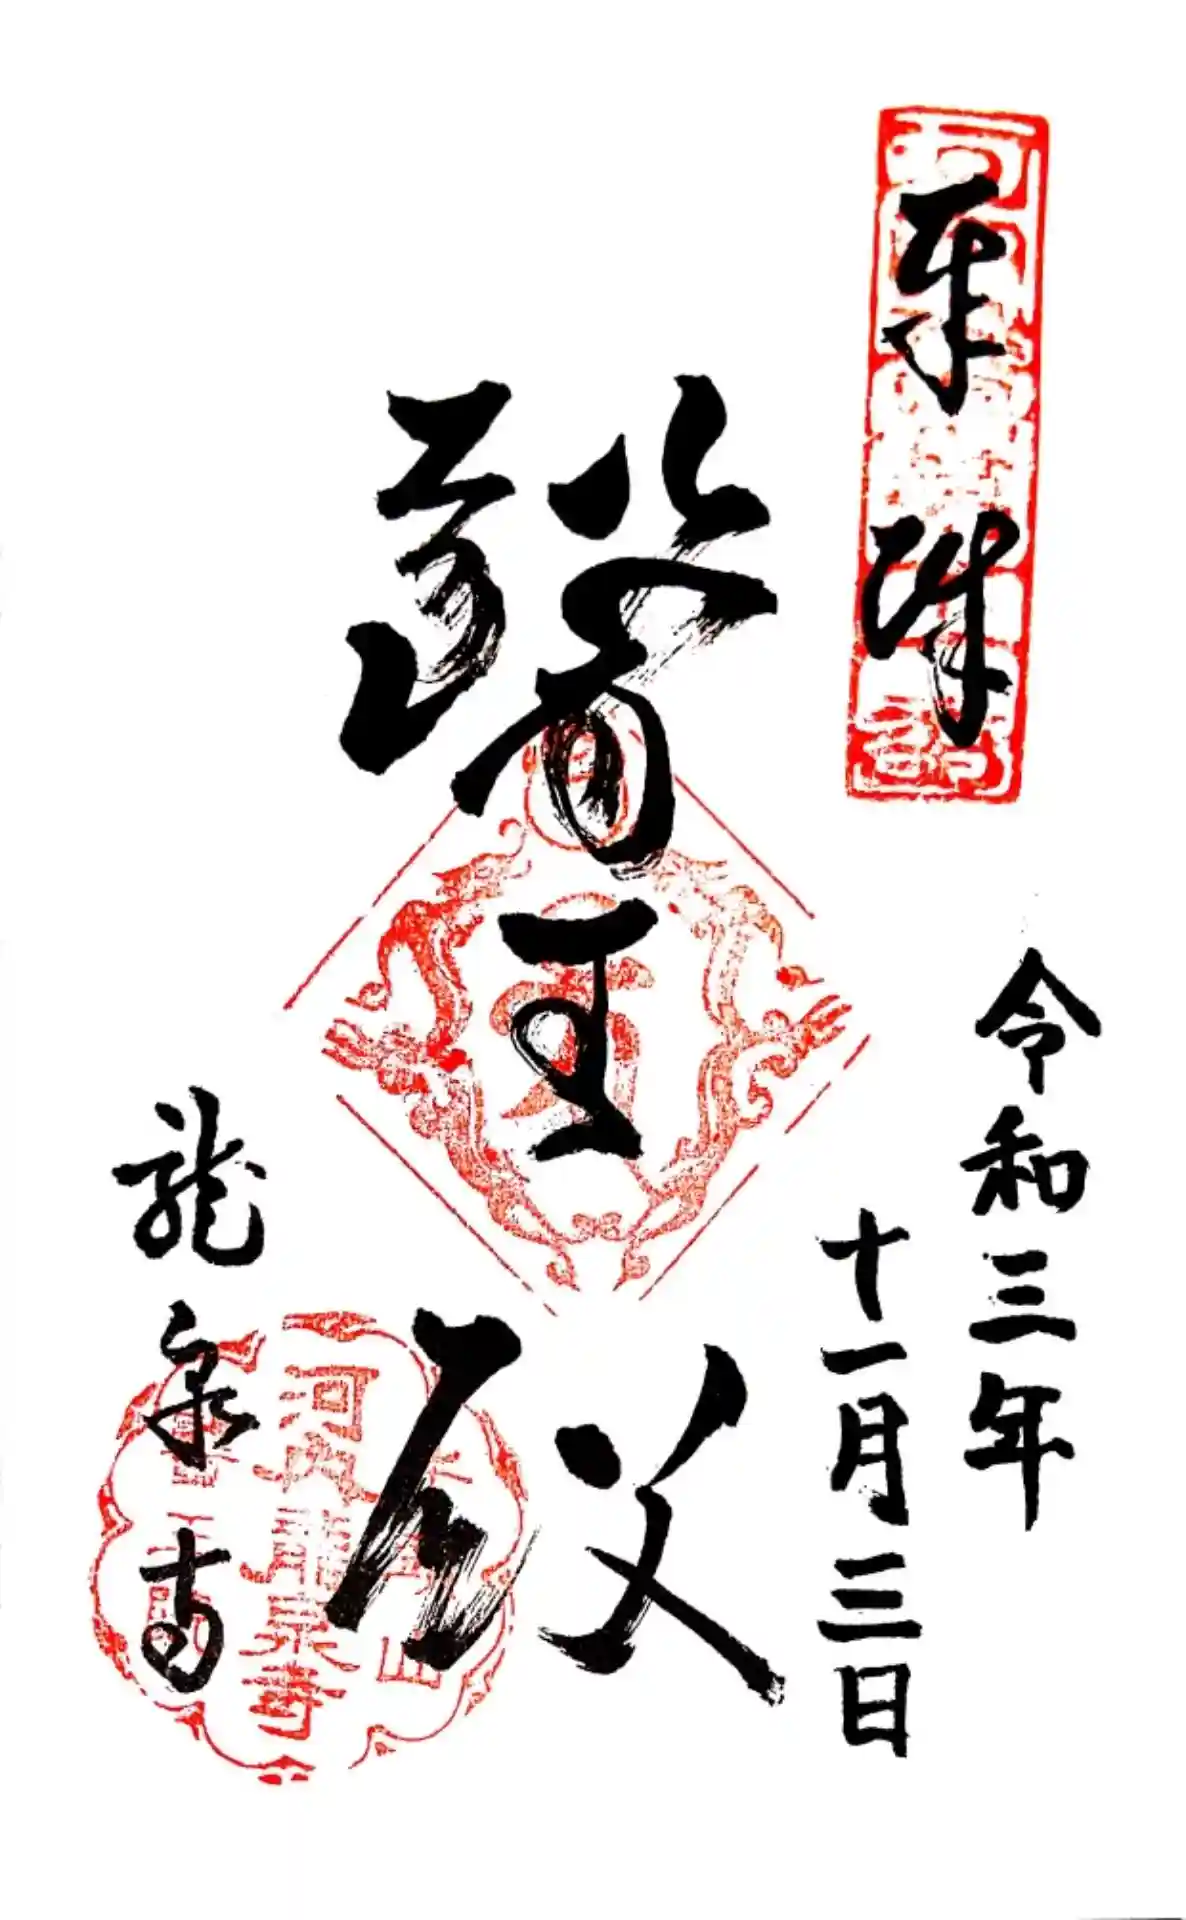 奉拝
令和三年
十一月三日
醫王殿
龍泉寺
河内龍泉寺